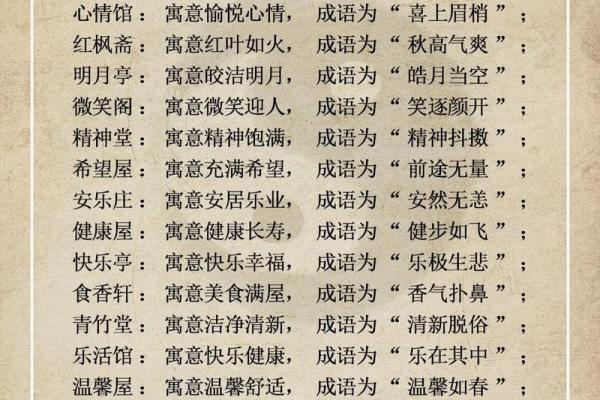 心情馆：寓意愉悦心情，成语为“喜上眉梢”；
红枫斋：寓意红叶如火，成语为“秋高气爽”；
明月亭：寓意皎洁明月，成语为“皓月当空”；
微笑阁：寓意微笑迎人，成语为“笑逐颜开”；
精神堂：寓意精神饱满，成语为“精神抖擞”；
希望屋：寓意充满希望，成语为“前途无量”；
安乐庄：寓意安居乐业，成语为“安然无恙”；
健康屋：寓意健康长寿，成语为“健步如飞”；
快乐亭：寓意快乐幸福，成语为“乐极生悲”；
食香轩：寓意美食满屋，成语为“香气扑鼻”；
青竹堂：寓意洁净清新，成语为“清新脱俗”；
乐活馆：寓意快乐健康，成语为“乐在其中”；
温馨屋：寓意温馨舒适，成语为“温馨如春”；